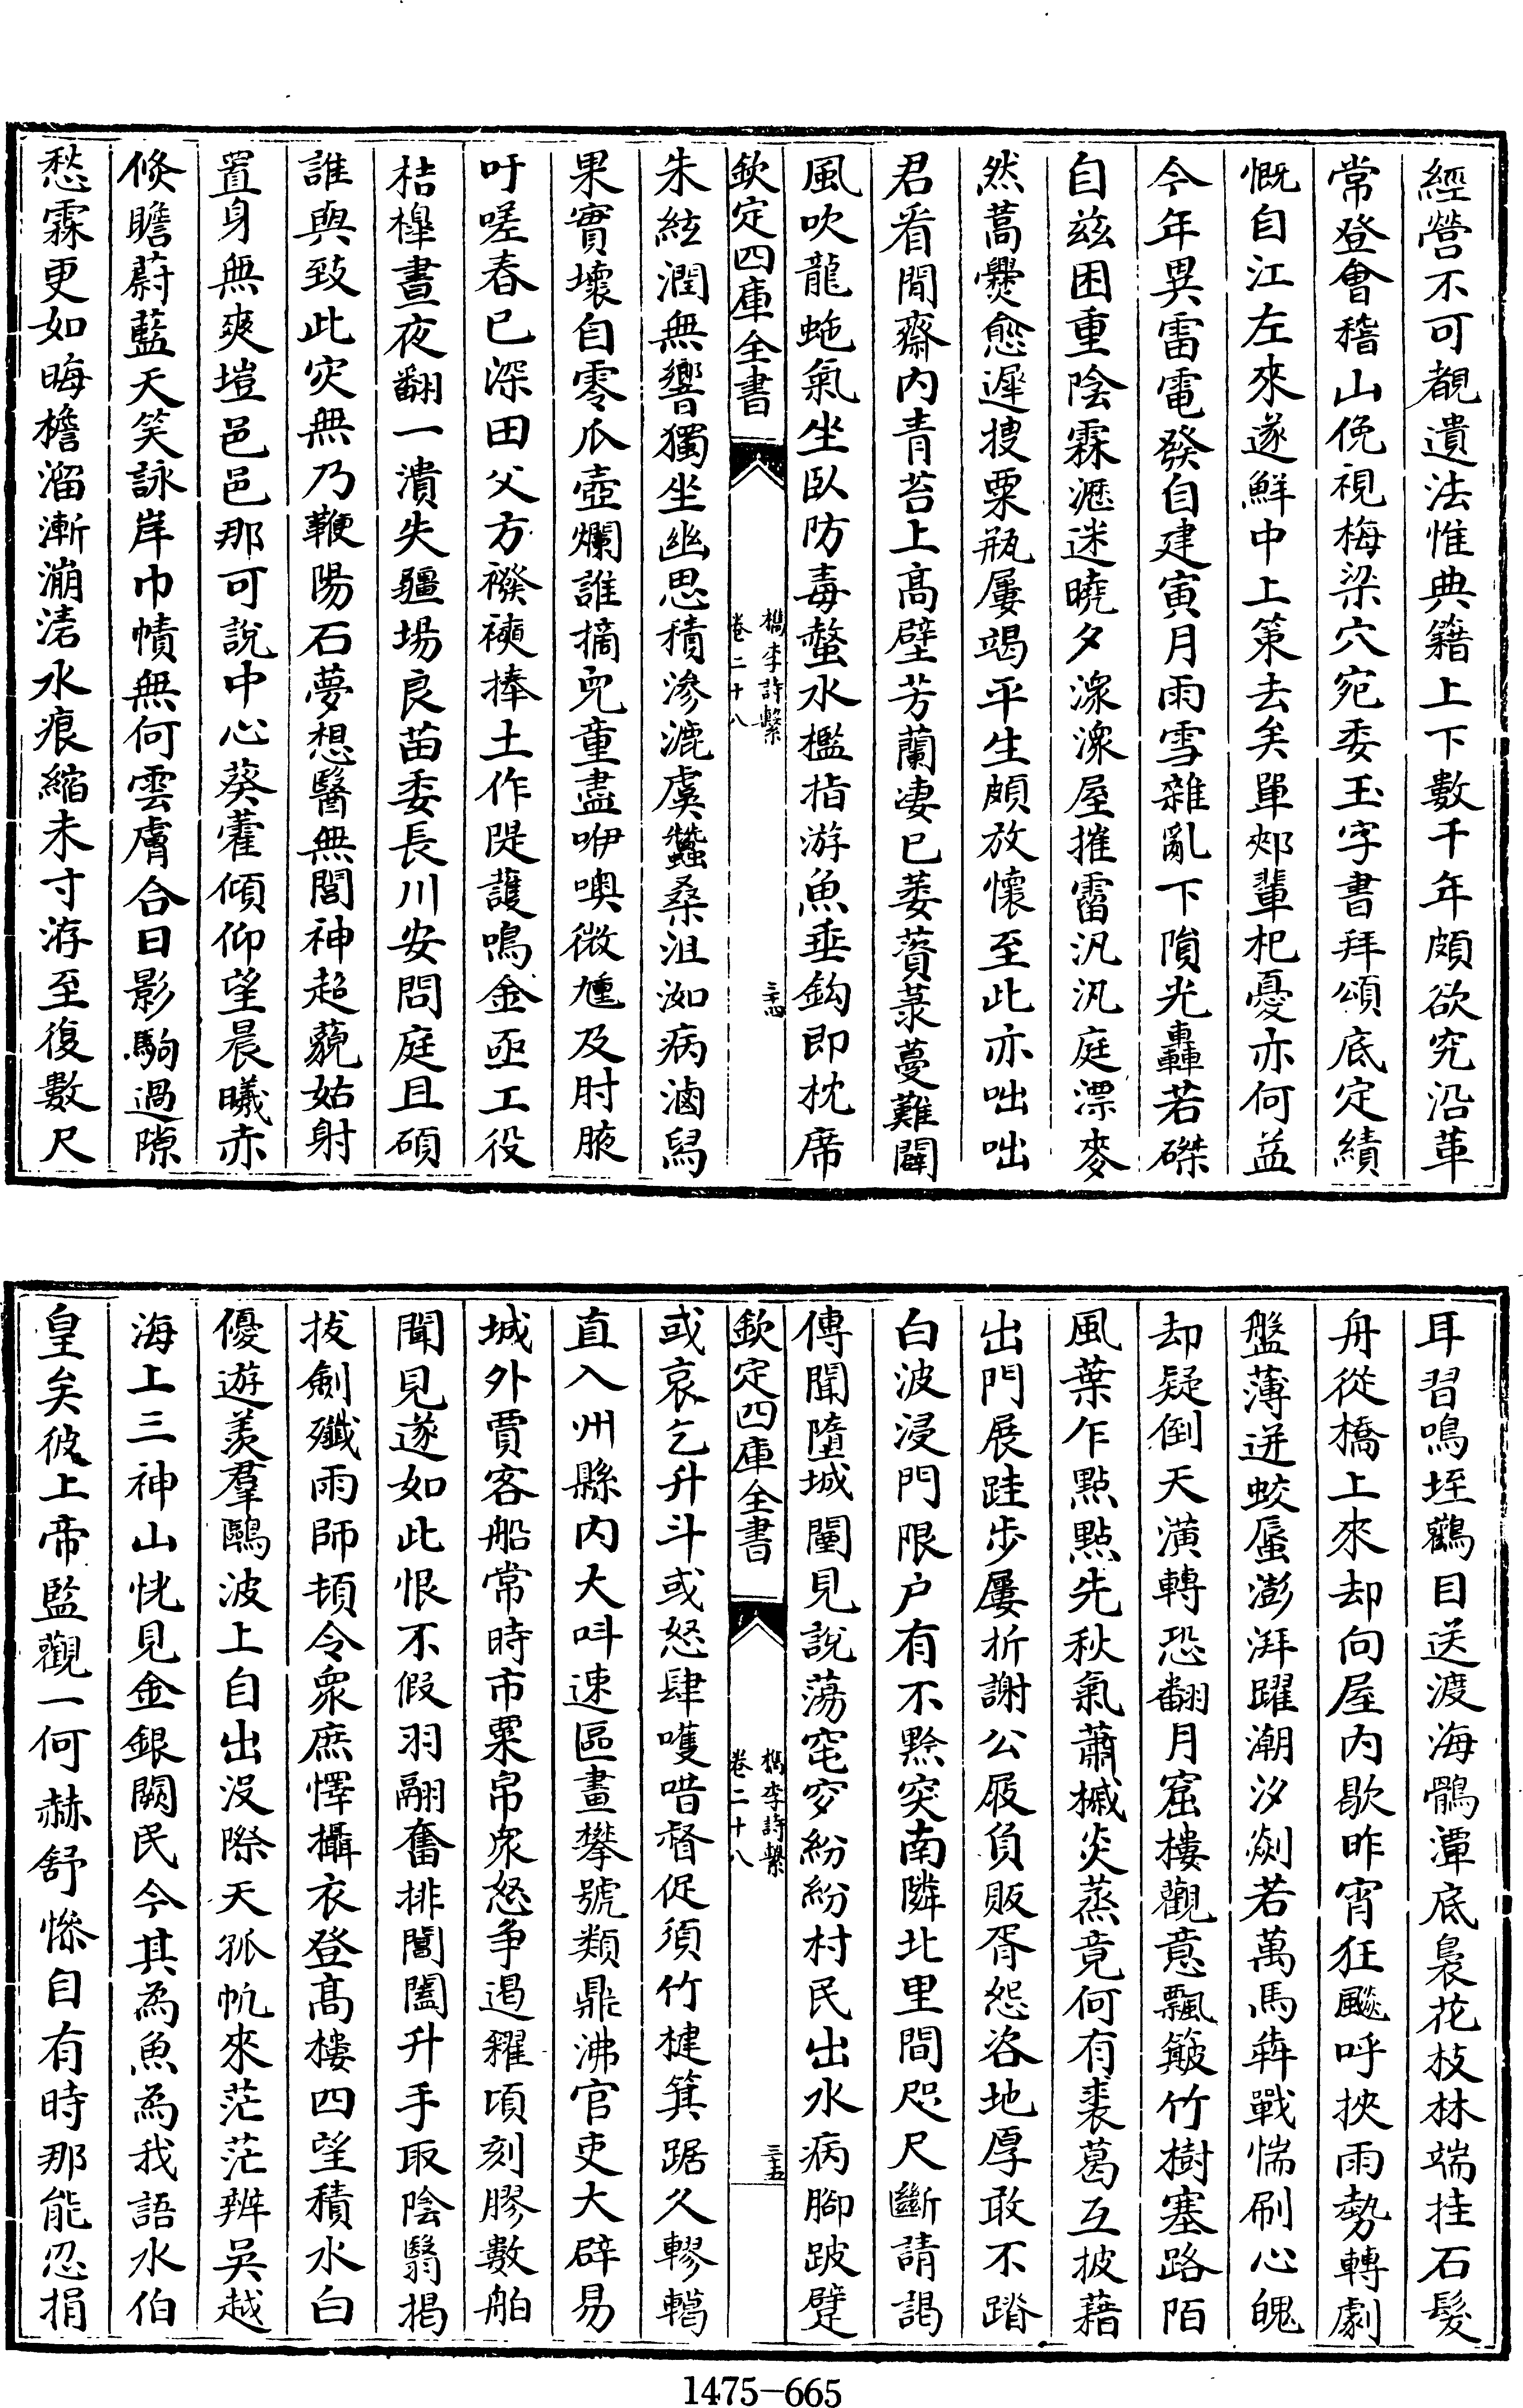 經營不可覩遺法惟典籍上下數千年頗欲究沿革
常登會稽山俛視梅梁穴宛委玉字書拜頌底定績
慨自江左來遂鮮中上策去矣單郟輩杞憂亦何益
今年異雷電發自建寅月雨雪雜亂下隕光轟若磔
自兹困重陰霖瀝迷曉夕淙淙屋摧霤汎汎庭漂麥
然蒿爨愈遲搜粟瓶屢竭平生頗放懷至此亦咄咄
君看閒齋内青苔上高壁芳蘭凄已萎薋菉蔓難闢
風吹龍虵氣坐臥防毒螫水檻指游魚垂鈎即枕席
欽定四庫全書
檇李詩繫
卷二十八
三十四
朱絃潤無響獨坐幽思積滲漉虞蠶桑沮洳病滷舄
果實壞自零瓜壺爛誰摘兒童盡咿噢微尰及肘腋
吁嗟春已深田父方襏襫捧土作隄護鳴金亟工役
桔橰晝夜翻一潰失疆場良苗委長川安問庭且碩
誰與致此灾無乃鞭陽石夢想醫無閭神超藐姑射
置身無爽塏邑邑那可說中心葵藿傾仰望晨曦赤
倐瞻蔚藍天笑詠岸巾幘無何雲膚合日影駒過隙
愁霖更如晦檐溜漸漰湱水痕縮未寸洊至復數尺
耳習鳴垤鸛目送渡海鶻潭底裊花枝林端挂石髮
舟從橋上來却向屋内歇昨宵狂飈呼挾雨勢轉劇
盤薄迸蛟蜃澎湃躍潮汐剡若萬馬犇戰惴刷心魄
却疑倒天潢轉恐翻月窟樓觀意飄簸竹樹塞路陌
風葉乍點點先秋氣蕭槭炎蒸竟何有裘葛互披藉
出門展跬步屢折謝公屐負販胥怨咨地厚敢不蹐
白波浸門限户有不黔突南隣北里間咫尺斷請謁
傳聞墮城闉見說蕩窀穸紛紛村民出水病腳跛躄
欽定四庫全書
檇李詩繫
卷二十八
三十五
或哀乞升斗或怒肆嚄唶督促須竹楗箕踞久轇轕
直入州縣内大呌速區畫攀號類鼎沸官吏大辟易
城外賈客船常時市粟帛衆怒争遏糴頃刻膠數舶
聞見遂如此恨不假羽翮奮排閶闔升手取陰翳揭
拔劒殲雨師頓令衆庶懌攝衣登高樓四望積水白
優遊羡羣鷗波上自出沒際天孤帆來茫茫辨吳越
海上三神山恍見金銀闕民今其為魚為我語水伯
皇矣彼上帝監觀一何赫舒慘自有時那能忍捐
1475-665